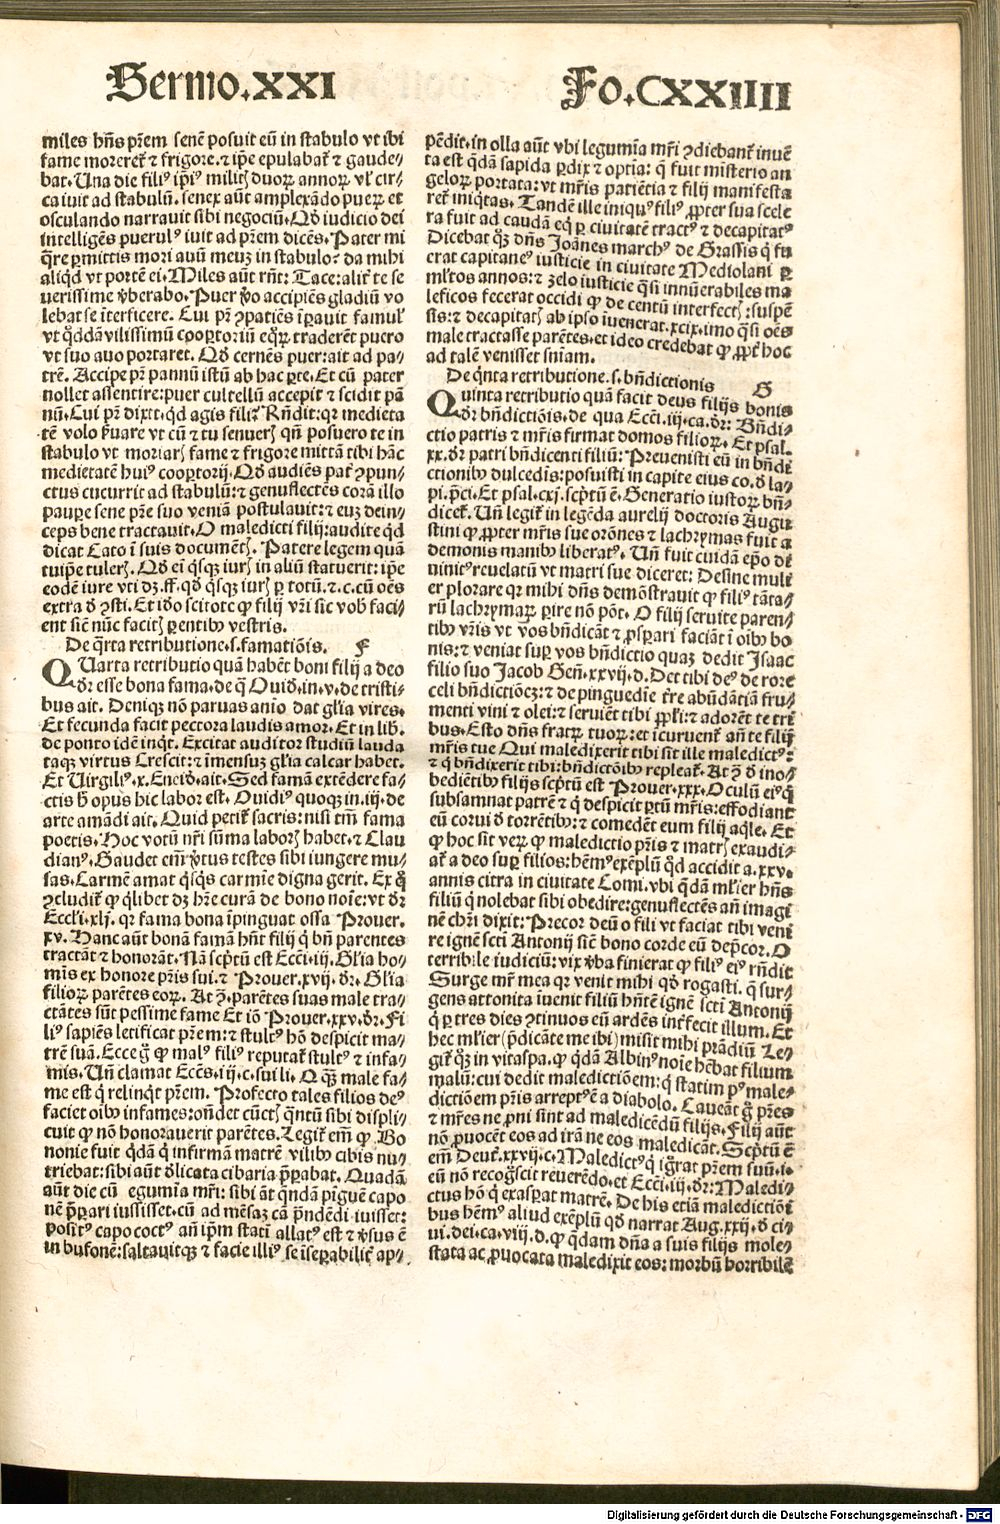 Sermo.XXI
Fo.CXXIIII
miles hñs pr̃em senē posuit eũ in stabulo vt ibi
fame moreret᷑ ⁊ frigore.⁊ ip̃e epulabat᷑ ⁊ gaude⸗
bat.Una die filiꝰ ip̃iꝰ militꝭ duoꝝ annoꝝ vl᷑ cir⸗
ca iuit ad stabulũ. senex aũt amplexādo pueꝝ et
osculando narrauit sibi negociũ.Qđ iudicio dei
intelligēs puerulꝰ iuit ad pr̃em dicēs.Pater mi
q̃re ꝑmittis mori auũ meuʒ in stabulo? da mihi
aliqͥd vt portē ei.Miles aũt rñt: Tace:alit᷑ te se
uerissime v̓berabo.Puer v̓o accipiēs gladiũ vo
lebat se īterficere. Cui pr̃ ꝯpatiēs īꝑauit famul᷑
vt qͥddā vilissimũ cooꝑtoriũ eqͦꝝ traderēt puero
vt suo auo portaret. Qđ cernēs puer:ait ad pa⸗
trē. Accipe pr̃ pannũ istũ ab hac ꝑte.Et cũ pater
nollet assentire:puer cultellũ accepit ⁊ scidit pā
nũ.Cui pr̃ dixit.qͥd agis fili? Rñdit:qꝛ medieta
tē volo s̓uare vt cũ ⁊ tu senuerꝭ qñ posuero te in
stabulo vt moriarꝭ fame ⁊ frigore mittā tibi hāc
medietatē huiꝰ cooꝑtorij.Qđ audiēs pat᷑ ꝯpun⸗
ctus cucurrit ad stabulũ:⁊ genuflectēs corā illo
paupe sene pr̃e suo veniā postulauit:⁊ euʒ dein⸗
ceps bene tractauit.O maledicti filij:audite qͥd
dicat Cato ī suis documētꝭ. Patere legem quā
tuip̃e tulerꝭ. Qđ ei qͥsqʒ iurꝭ in aliũ statuerit:ip̃e
eodē iure vti dʒ.ff.qđ qͥsqʒ iurꝭ ꝑ totũ.⁊.c.cũ oēs
extra đ ꝯsti. Et iđo scitote ꝙ filij vr̃i sic vob̓ faci⸗
ent sic̄ nũc facitꝭ ꝑentibꝰ vestris.
De qͣrta retributione.s.famatiōis. F
QUarta retributio quā habēt boni filij a deo
đr esse bona fama.de q̃ Ouiđ.in.v.de tristi⸗
bus ait. Deniqʒ nō paruas anio dat gl̓ia vires.
Et fecunda facit pectora laudis amor. Et in lib̓.
de ponto idē inqͥt. Excitat auditor studiũ lauda
taqʒ virtus Crescit:⁊ imensuʒ gl̓ia calcar habet.
Et Uirgiliꝰ.x.Eneiđ.ait.Sed famā extēdere fa⸗
ctis h̓ opus hic labor est. Ouidiꝰ quoqʒ in.iij.de
arte amādi ait. Quid petit᷑ sacris:nisi tm̄ fama
poetis. Hoc votũ nr̃i sũma laborꝭ habet.⁊ Clau
dianꝰ. Gaudet em̄ v̓tus testes sibi iungere mu⸗
sas.Carmē amat qͥsqͥs carmīe digna gerit. Ex qͦ
ꝯcludit᷑ ꝙ qͥlibet dʒ hr̃e curā de bono noīe:vt đr
Eccl̓i.xlj. qꝛ fama bona īpinguat ossa Prouer.
xv. Hanc aũt bonā famā hñt filij qͥ bñ parentes
tractāt ⁊ honorāt. Nā scp̄tũ est Ecci.iij. Gl̓ia ho⸗
mīs ex honore pr̃is sui.⁊ Prouer.xvij. đr. Gl̓ia
filioꝝ parētes eoꝝ. At ꝫ.parētes suas male tra⸗
ctātes sũt pessime fame Et iō Prouer.xxv.đr.Fi
liꝰ sapiēs letificat pr̃em:⁊ stultꝰ hō despicit ma⸗
trē suā.Ecce g̊ ꝙ malꝰ filiꝰ reputat᷑ stultꝰ ⁊ infa⸗
mis. Uñ clamat Eccs.iij.c.sui li. O qͣʒ male fa⸗
me est qͥ relinqͥt pr̃em. Profecto tales filios deꝰ
faciet oibꝰ infames:oñdet cũctꝭ qͣntũ sibi displi⸗
cuit ꝙ nō honorauerit parētes. Legit᷑ em̄ ꝙ Bo
nonie fuit qͥdā qͥ infirmā matrē vilibꝰ cibis nu⸗
triebat:sibi aũt đlicata cibaria p̄ꝑabat. Quadā
aũt die cũ egumīa mr̃i: sibi āt qͥndā piguē capo
nē p̄ꝑari iussisset.cũ ad mēsaʒ cā p̄ndēdi iuisset:
positꝰ capo coctꝰ añ ip̄m statī allatꝰ est ⁊ v̓sus ē
in bufonē:saltauitqʒ ⁊ facie illiꝰ se īseꝑabilit᷑ ap⸗
pēdit.in olla aũt vbi legumīa mr̃i ꝯdiebant᷑ inuē
ta est qͥdā sapida ꝑdix ⁊ optīa: q̃ fuit mīsterio an
geloꝝ portata:vt mr̃is patiētia ⁊ filij manifesta
ret᷑ iniqͥtas. Tandē ille iniquꝰ filiꝰ ꝓpter sua scele
ra fuit ad caudā eqͥ ꝑ ciuitatē tractꝰ ⁊ decapitatꝰ
Dicebat qͦʒ dñs Joānes marchꝰ de Grassis q̃ fu
erat capitaneꝰ iusticie in ciuitate Mediolani ꝑ
ml̓tos annos:⁊ zelo iusticie qͣsi innũerabiles ma
leficos fecerat occidi ꝙ de centũ interfectꝭ:suspē
sis:⁊ decapitatꝭ ab ipso iuenerat.xcix.imo qͣsi oēs
male tractasse parētes.et ideo credebat ꝙ ꝓpt᷑ hoc
ad talē venisset snīam.
De qͥnta retributione.s.bñdictionis G
QUinta retributio quā facit deus filijs bonis
đr bñdictiōis.de qua Ecci.iij.ca.đr: Bñdi⸗
ctio patris ⁊ mr̃is firmat domos filioꝝ. Et psal.
xx.đr patri bñdicenti filiũ: Preuenisti eũ in bñdi
ctionibꝰ dulcedīs:posuisti in capite eius co.đ la⸗
pi.p̄ci.Et psal.cxj.scp̄tũ ē. Generatio iustoꝝ bñ⸗
dicet᷑. Uñ legit᷑ in legēda aurelij doctoris Augu
stini ꝙ ꝓpter mr̃is sue orōnes ⁊ lachrymas fuit a
demonis manibꝰ liberatꝰ. Uñ fuit cuidā ep̄o di
uinitꝰ reuelatũ vt matri sue diceret: Desine muli
er plorare qꝛ mihi dñs demōstrauit ꝙ filiꝰ tāta⸗
rũ lachrymaꝝ ꝑire nō pōt. O filij seruite paren⸗
tibꝰ vr̃is vt vos bñdicāt ⁊ ꝓsꝑari faciāt ī oibꝰ bo
nis:⁊ veniat suꝑ vos bñdictio quaʒ dedit Isaac
filio suo Jacob Geñ.xxvij.đ.Det tibi deꝰ de rore
celi bñdictiōeʒ:⁊ de pinguedīe t̄re abũdātiā fru⸗
menti vini ⁊ olei:⁊ seruiēt tibi ꝓpl̓i:⁊ adorēt te tri
bus.Esto dñs fratꝝ tuoꝝ:et īcuruent᷑ añ te filij
mr̃is tue Qui maledixerit tibi sit ille maledictꝰ:
⁊ qͥ bñdixerit tibi:bñdictōibꝰ repleat᷑. At ꝫ đ ino⸗
bediētibꝰ filijs scp̄tũ est Prouer.xxx.Oculũ eiꝰ qͥ
subsannat patrē ⁊ qͥ despicit ꝑtũ mr̃is:effodiant
eũ corui đ torrētibꝰ:⁊ comedēt eum filij aqͥle. Et
ꝙ hoc sit veꝝ ꝙ maledictio pr̃is ⁊ matrꝭ exaudi⸗
at᷑ a deo suꝑ filios:hēmꝰ exēplũ qđ accidit a.xxv.
annis citra in ciuitate Comi.vbi qͥdā ml̓ier hñs
filiũ qͥ nolebat sibi obedire:genuflectēs añ imagi
nē chr̃i dixit:Precor deũ o fili vt faciat tibi veni
re ignē sct̄i Antonij sic̄ bono corde eũ dep̄cor. O
terribile iudiciũ:vix v̓ba finierat ꝙ filiꝰ eiꝰ rñdit
Surge mr̃ mea qꝛ venit mihi qđ rogasti. q̃ sur⸗
gens attonita īuenit filiũ hñtē ignē sct̄i Antonij
qͥ ꝑ tres dies ꝯtinuos eũ ardēs int̓fecit illum. Et
hec ml̓ier (p̄dicāte me ibi) misit mihi prādiũ Le⸗
git᷑ qͦʒ in vitaspa.ꝙ qͥdā Albinꝰ noīe hēbat filium
malũ:cui dedit maledictiōem:qͥ statim pꝰ male⸗
dictiōem pr̃is arreptꝰ ē a diabolo. Caueāt g̊ pr̃es
⁊ mr̃es ne ꝓni sint ad maledicēdũ filijs.Filij aũt
nō ꝓuocēt eos ad irā ne eos maledicāt. Scp̄tũ ē
em̄ Deut᷑.xxvij.c.Maledictꝰ qͥ īg̊rat pr̃em suũ.i.
eũ nō recog̊scit reuerēdo.et Ecci.iij.đr:Maledi⸗
ctus hō qͥ exasꝑat matrē. De his etiā maledictiōi
bus hēmꝰ aliud exēplũ qđ narrat Aug.xxij.đ ci⸗
ui.dei.ca.viij.đ.ꝙ qͥdam dña a suis filijs mole⸗
stata ac ꝓuocata maledixit eos: morbũ horribilē
Digitalisierung gefördert durch die Deutsche Forschungsgemeinschaft - DFG